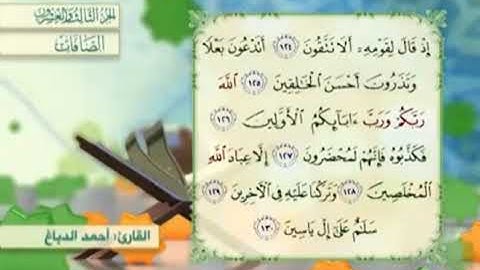 الجزء الثالث والعشرون
الصافات
إِذْ قَالَ لِقَوْمِهِۦٓ أَلَا تَتَّقُونَ ١٢٤ أَتَدْعُونَ بَعْلًا
وَتَذَرُونَ أَحْسَنَ ٱلْخَٰلِقِينَ ١٢٥ ٱللَّهَ
رَبَّكُمْ وَرَبَّ ءَابَآئِكُمُ ٱلْأَوَّلِينَ ١٢٦
فَكَذَّبُوهُ فَإِنَّهُمْ لَمُحْضَرُونَ ١٢٧ إِلَّا عِبَادَ ٱللَّهِ
ٱلْمُخْلَصِينَ ١٢٨ وَتَرَكْنَا عَلَيْهِ فِى ٱلْءَاخِرِينَ ١٢٩
سَلَٰمٌ عَلَىٰٓ إِلْ يَاسِينَ ١٣٠
القارئ: أحمد الدباغ